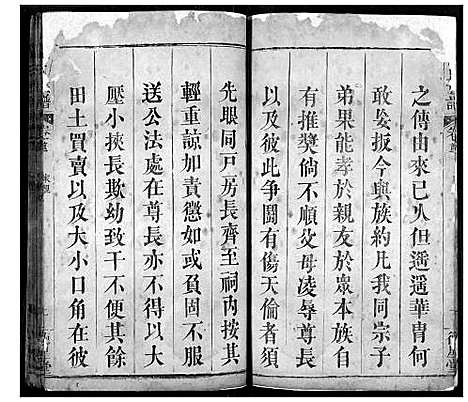 之傳由來已久但遥遥華胄何
敢妄扳今與族約凡我同宗子
弟果能孝於親友於衆本族自
有推奬倘不順父母凌辱尊長
以及彼此争鬪有傷天倫者須
先眼同戸房長齊至祠内按其
輕重諒加責懲如或負固不服
送公法處在尊長亦不得以大
壓小挾長欺幼致干不便其餘
田土買賣以及大小口角在彼